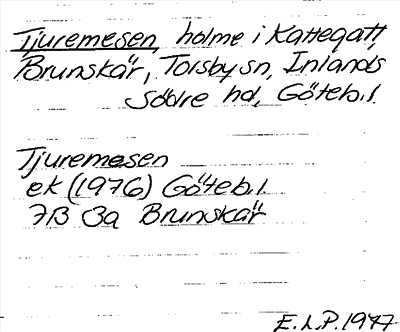 Tjuremesen, holme i Kattegatt,
Brunskär, Torsby sn, Inlands
Södre hd, Göteb.l.
Tjuremesen
ek (1976) Göteb.l.
7B 3a Brunskär
E.L.P. 1977